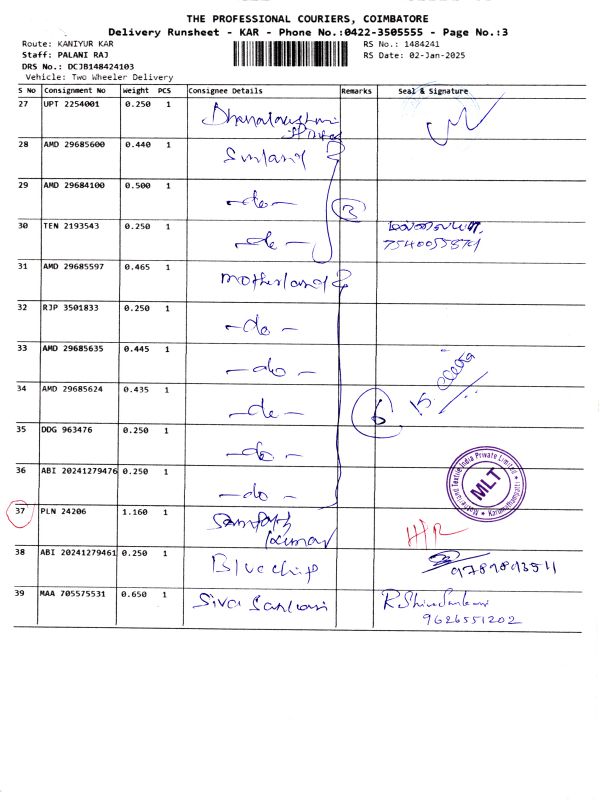 THE PROFESSIONAL COURIERS, COIMBATORE
Delivery Runsheet - KAR - Phone No.:0422-3505555 - Page No.:3
Route: KANIYUR KAR
RS No.: 1484241
Staff: PALANI RAJ
RS Date: 02-Jan-2025
DRS No.: DCJB148424103
Vehicle: Two Wheeler Delivery
S No Consignment No Weight PCS Consignee Details Remarks Seal & Signature
27 UPT 2254001 0.250 1
28 AMD 29685600 0.440 1 Sunland
29 AMD 29684100 0.500 1 -do-
3
30 TEN 2193543 0.250 1 -do-
31 AMD 29685597 0.465 1 Motherland
32 RJP 3501833 0.250 1 -do-
33 AMD 29685635 0.445 1 -do-
34 AMD 29685624 0.435 1 -do-
6
35 DDG 963476 0.250 1 -do-
36 ABI 20241279476 0.250 1 -do-
MLT
37 PLN 24206 1.160 1 Sampath
Kumar
38 ABI 20241279461 0.250 1 Bluechip
39 MAA 705575531 0.650 1 Siva Sankari R Shivasankari
9626551202